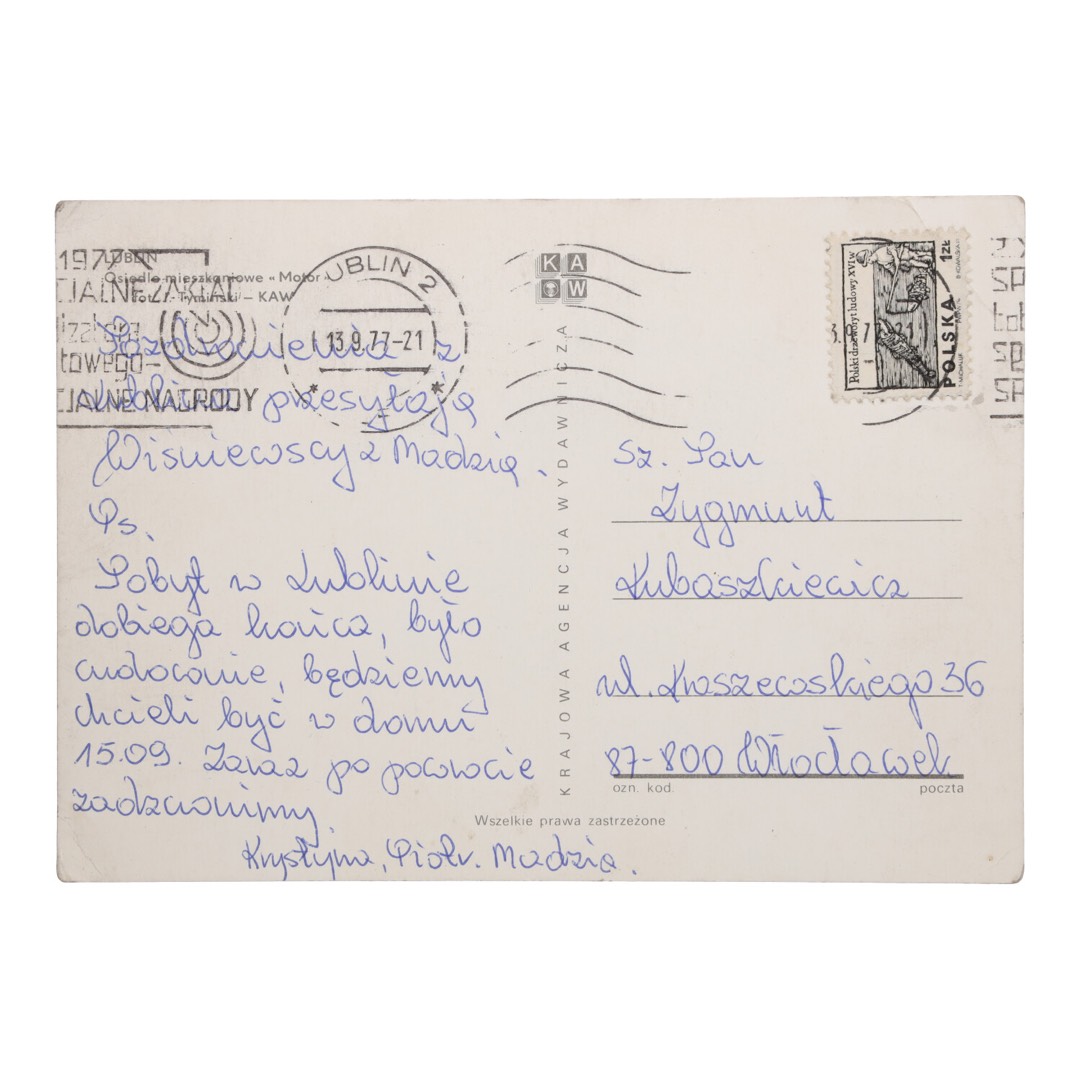 LUBLIN
Osiedle mieszkaniowe « Motor
Fot. J. Tymiński – KAW
1977
CJALNE ZAKŁAD
towego–
CJALNE NAGRODY
LUBLIN 2
13.9.77-21
KAW
Polski drzeworyt ludowy XVI w
POLSKA
1 ZŁ
Pozdrowienia z
Lublina przesyłają
Wiśniewscy z Madzią.
Ps.
Pobyt w Lublinie
dobiega końca, było
cudownie, będziemy
chcieli być w domu
15.09. Zaraz po powrocie
zadzwonimy
Krystyna, Piotr. Madzia.
KRAJOWA AGENCJA WYDAWNICZA
Sz. Pan
Zygmunt
Lubaszkiewicz
ul. Kraszewskiego 36
87-800 Włocławek
ozn. kod.
poczta
Wszelkie prawa zastrzeżone